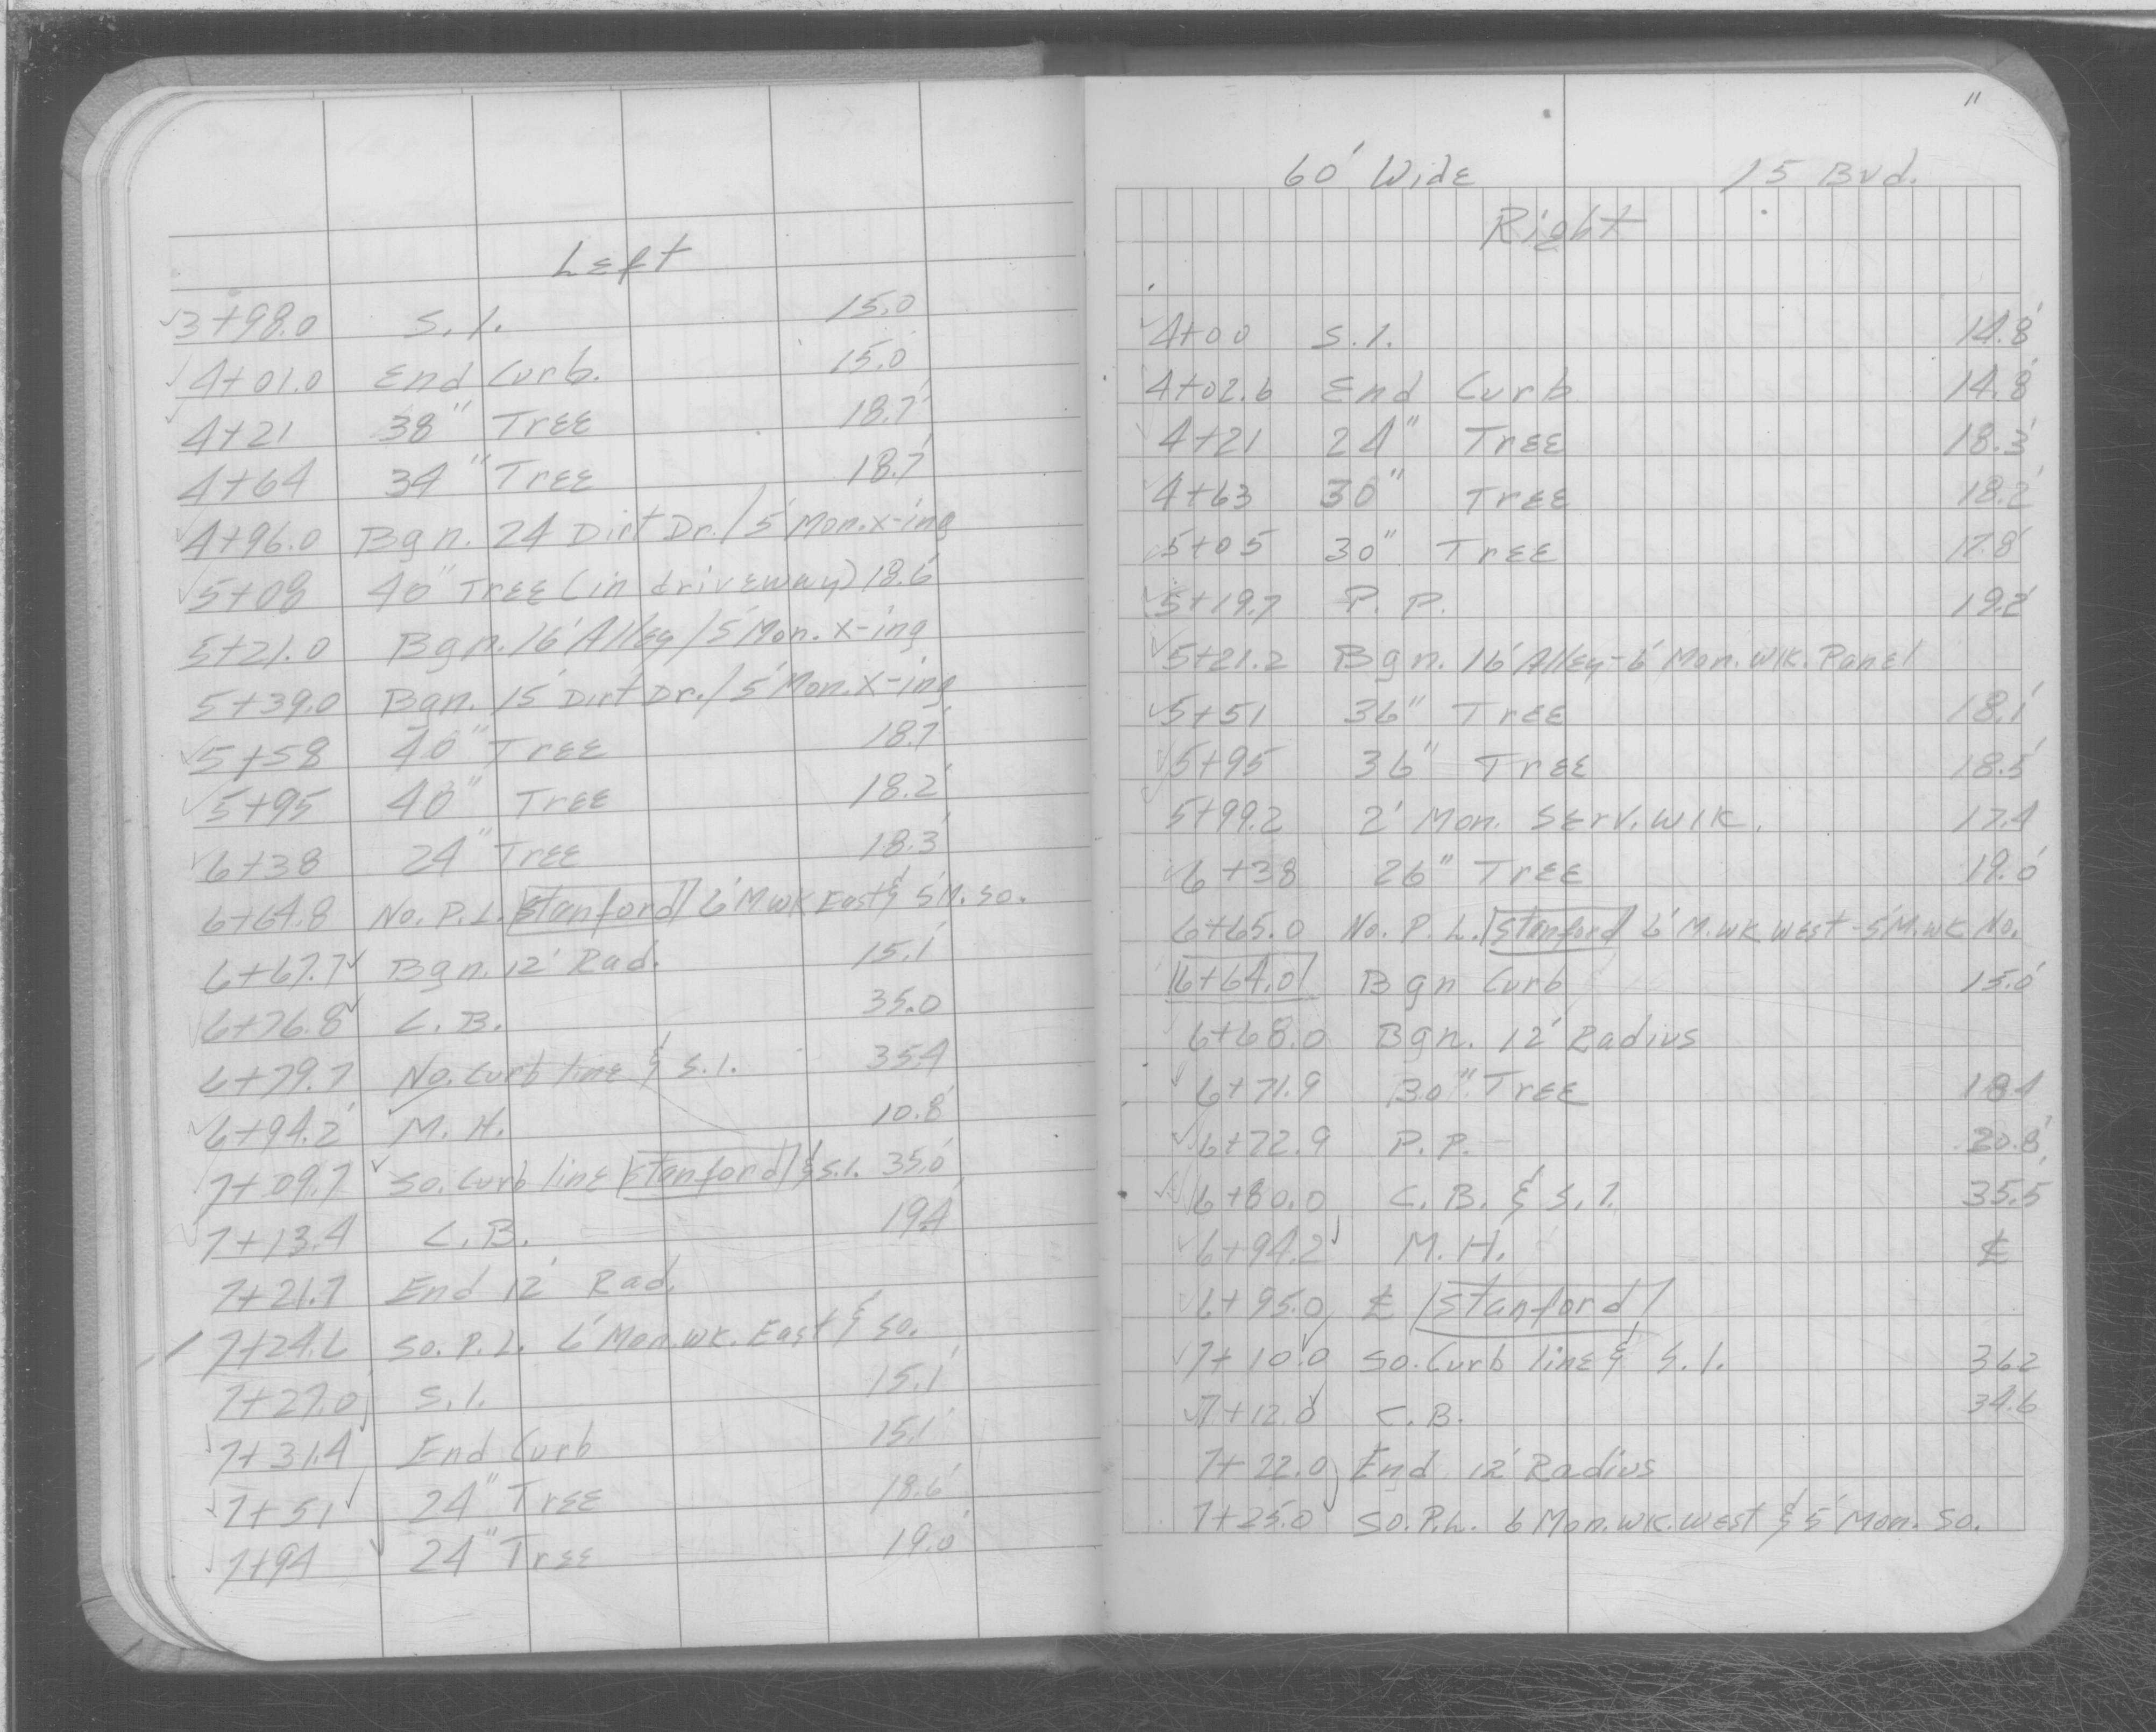 Left
3+98.0 S.I. 15.0
4+01.0 End Curb. 15.0'
4+21 38" Tree 18.7'
4+64 34" Tree 18.7'
4+96.0 Bgn. 24 Dirt Dr./5' Mon.x-ing
5+08 40" Tree (in driveway) 18.6'
5+21.0 Bgn. 16' Alley/5' Mon. x-ing
5+39.0 Bgn. 15' Dirt Dr./5' Mon.x-ing
5+58 40" Tree 18.7'
5+95 40" Tree 18.2'
6+38 24" Tree 18.3'
6+64.8 No. P.L. Stanford 6' M wk East & 5' M. So.
6+67.7 Bgn. 12' Rad. 15.1'
6+76.8 C.B. 35.0
6+79.7 No. Curb line & S.I. 35.4
6+94.2 M.H. 10.8'
7+09.7 So. Curb line Stanford & S.I. 35.0'
7+13.4 C.B. 19.4'
7+21.7 End 12' Rad.
7+24.6 So. P.L. 6' Mon. wk. East & So.
7+27.0 S.I. 15.1'
7+31.4 End Curb 15.1'
7+51 24" Tree 18.6'
7+94 24" Tree 19.0'
11
60' Wide 15 Bvd.
Right
4+00 S.I. 14.8'
4+02.6 End Curb 14.8'
4+21 24" Tree 18.3'
4+63 30" Tree 18.2'
5+05 30" Tree 17.8'
5+19.7 P.P. 19.2'
5+21.2 Bgn. 16' Alley-6' Mon. Wlk. Panel
5+51 36" Tree 18.1'
5+95 36" Tree 18.5'
5+99.2 2' Mon. Serv. Wlk. 17.4
6+38 26" Tree 19.0'
6+65.0 No. P.L. Stanford 6' M.wk West-5' M.wk No.
6+64.0 Bgn Curb 15.0'
6+68.0 Bgn. 12' Radius
6+71.9 30" Tree 18.4
6+72.9 P.P. 20.8'
6+80.0 C.B. & S.I. 35.5'
6+94.2 M.H. ℄
6+95.0 ℄ Stanford
7+10.0 So. Curb line & S.I. 36.2
7+12.0 C.B. 34.6
7+22.0 End 12' Radius
7+25.0 So. P.L. 6 Mon. wk. West & 5' Mon. So.